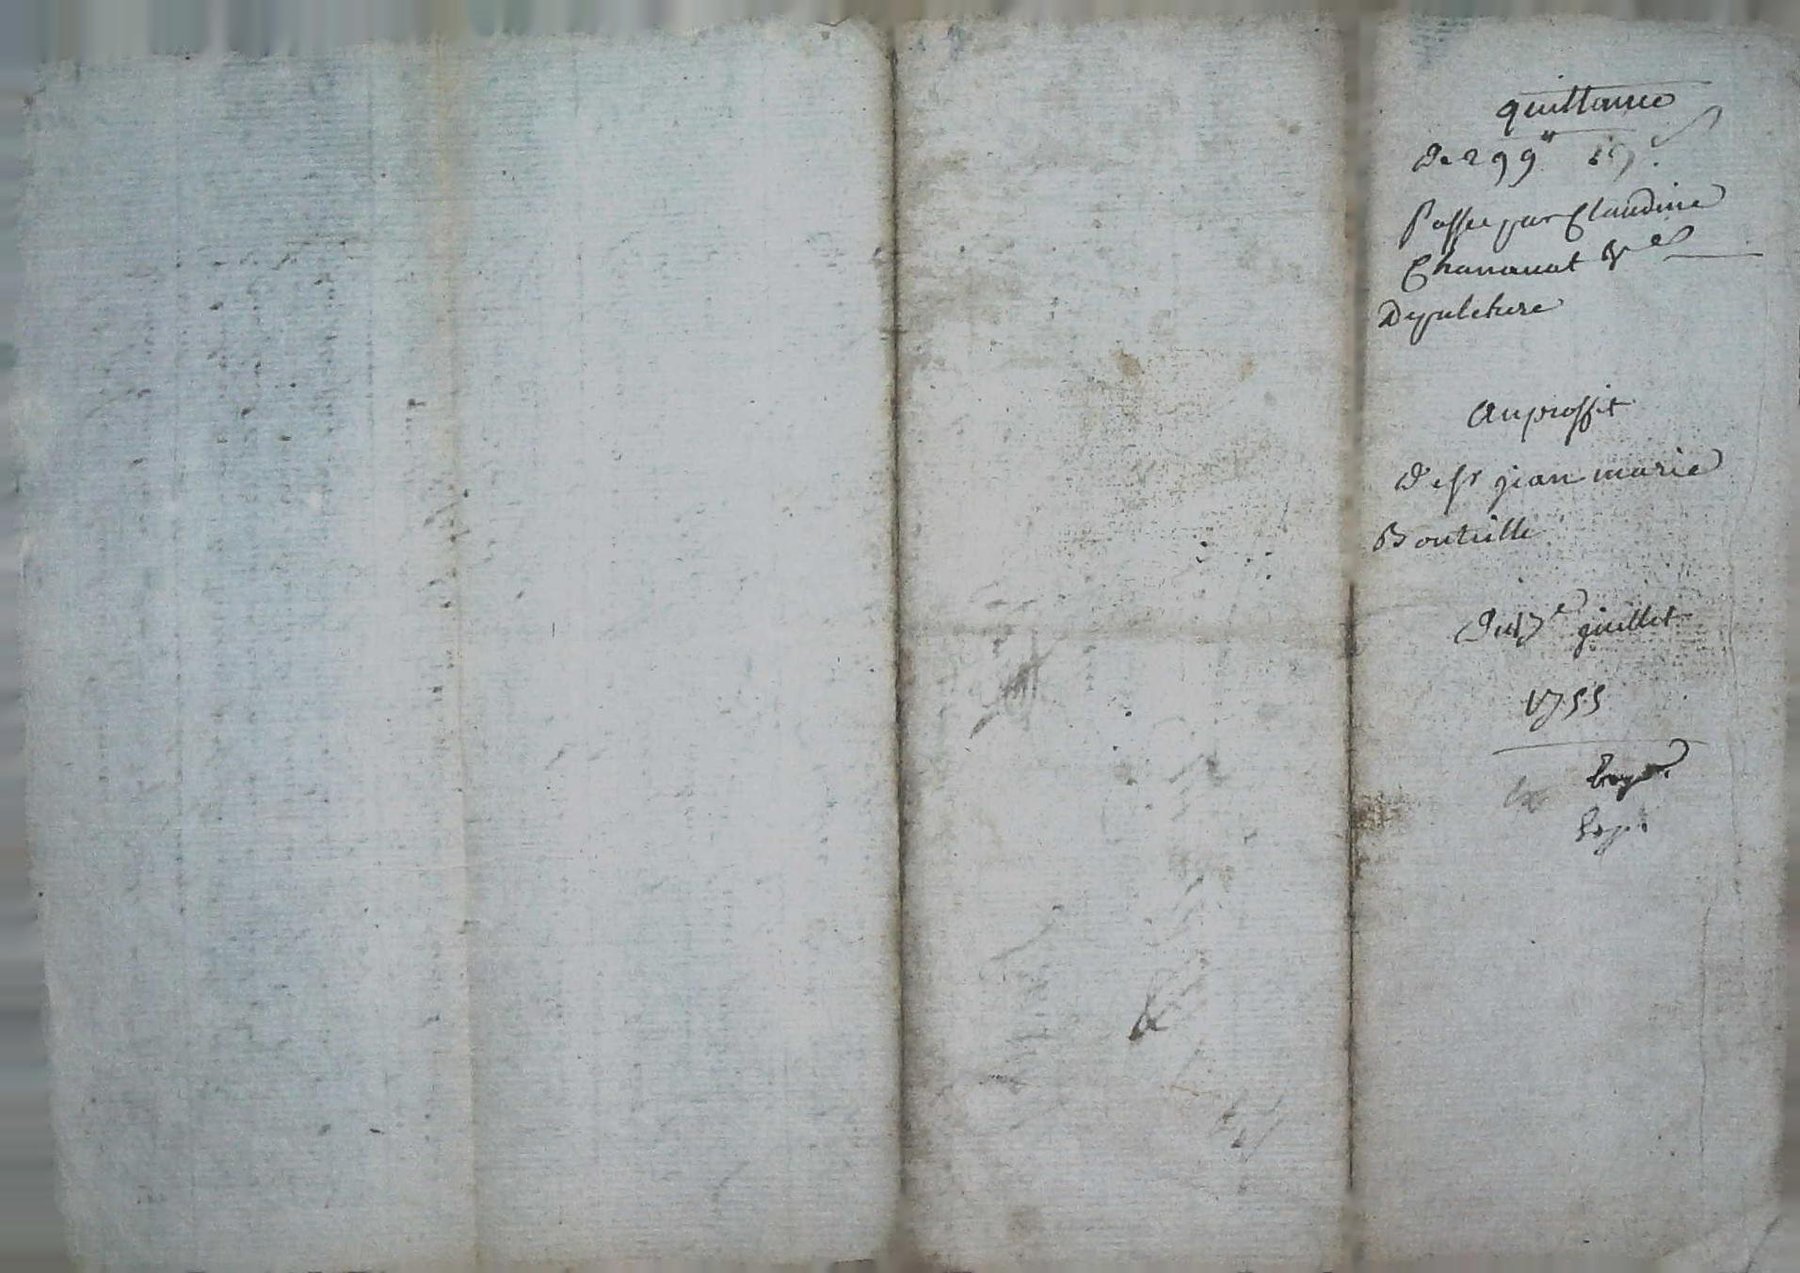 quittance
De 299ᵗᵗ 19ˢ
Passee par Claudine
Chanavat vᵉ
Depulchere
Au proffit
De sʳ jean marie
Bouteille
Du 17ᵉ juillet
1755